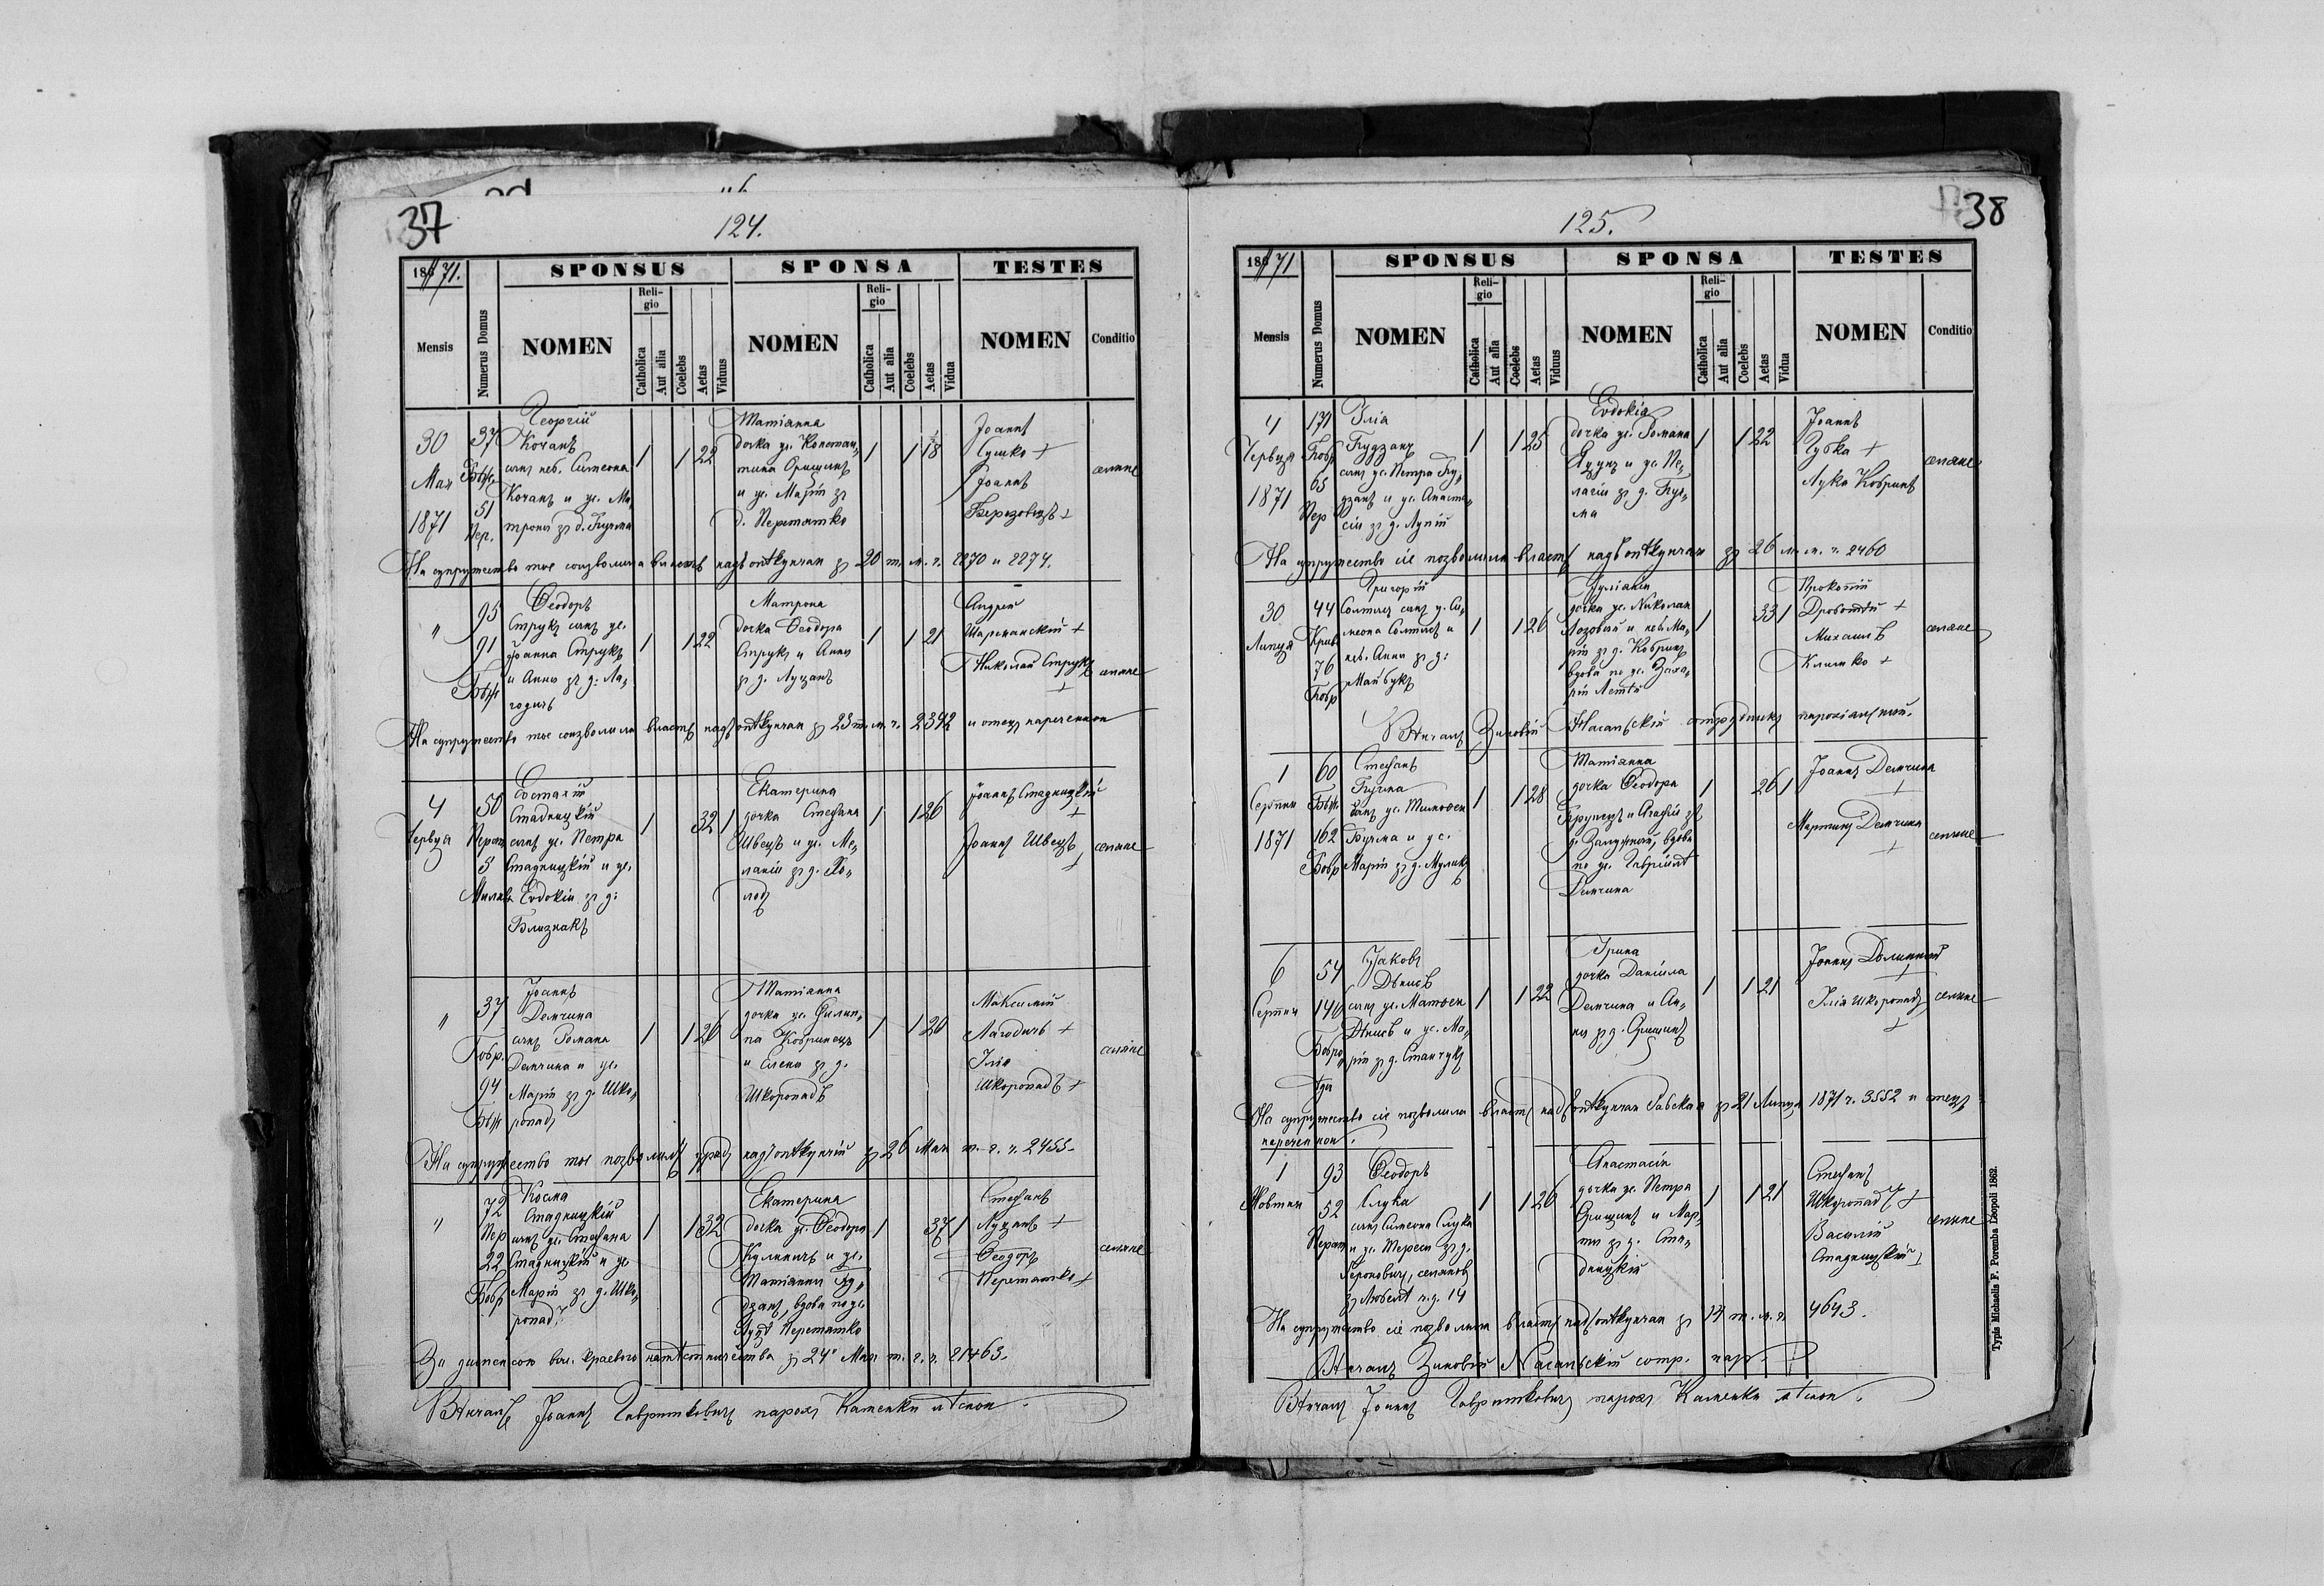 37
124.
1871.
SPONSUS
SPONSA
TESTES
Mensis
Numerus Domus
NOMEN
Religio
Catholica
Aut alia
Coelebs
Aetas
Viduus
NOMEN
Religio
Catholica
Aut alia
Coelebs
Aetas
Vidua
NOMEN
Conditio
30
Мая
1871
37
51
Пер.
Георгій
Кочанъ
сынъ неб. Симеона
Кочанъ и ус. Ма„
трони зъ д. Кучма
1
1
22
Татіанна
дочка ус. Констан„
тина Орищинъ
и ус. Маріи зъ
д. Перетятко
1
1
18
Іоаннъ
Сушко +
Іоаннъ
Березовецъ +
селяне
На супружество тое соизволила власть надъопѣкунчая зъ 20 т. м. ч. 2270 и 2274.
"
95
91
Ѳеодоръ
Струкъ сынъ ус.
Іоанна Струкъ
и Анны зъ д: Ла„
годичъ
1
1
22
Матрона
дочка Ѳеодора
Струкъ и Анны
зъ д. Луцанъ
1
1
21
Андрей
+
Николай Струкъ
+
селяне
На супружество тое соизволила власть надъопѣкунчая зъ 25 т. м. ч. 2342 и отецъ нареченной
4
Червця
50
Перет
5
Евстахій
Стадницкій
сынъ ус. Петра
Стадницкій и ус.
Евдокіи зъ д:
Близнакъ
1
32
1
Екатерина
дочка Стефана
Швецъ и ус. Ме„
ланіи зъ д. Хо„
лодъ
1
1
26
Іоаннъ Стадницкій
+
Іоаннъ Швецъ
+
селяне
"
37
Бобр.
94
Іоаннъ
Демчина
сынъ Романа
Демчина и ус.
Маріи зъ д. Шко„
ропадъ
1
1
26
Татіанна
дочка ус. Филип„
па Кобринецъ
и Елены зъ д.
Шкоропадъ
1
1
20
Максимъ
Лагодичъ +
Илія
Шкоропадъ +
селяне
На супружество тое позволилъ урядъ надъопѣкунчій зъ 26 Мая т. г. ч. 2455.
"
72
Пер
22
Бобр
Косма
Стадницкій
сынъ ус. Стефана
Стадницкій и ус
Маріи зъ д. Шко„
ропадъ.
1
1
32
Екатерина
дочка ус. Ѳеодора
Куликичъ и ус.
Татіанны Бу„
дзанъ, вдова по ус.
Перетятко
1
37
1
Стефанъ
Луцанъ +
Ѳеодоръ
Перетятко +
селяне
За диспенсою выс. краевого намѣстничества зъ 24 Мая т. г. ч. 21463.
Вѣнчалъ Іоаннъ Гавришкевичъ парохъ Каменки лѣсной.
38
125.
1871
SPONSUS
SPONSA
TESTES
Mensis
Numerus Domus
NOMEN
Religio
Catholica
Aut alia
Coelebs
Aetas
Viduus
NOMEN
Religio
Catholica
Aut alia
Coelebs
Aetas
Vidua
NOMEN
Conditio
4
Червця
1871
171
Бобр
65
Пер
Илія
Будзанъ
сынъ ус. Петра Бу„
дзанъ и ус. Анаста„
сіи зъ д. Лупій
1
1
25
Евдокія
дочка ус. Романа
Яцунъ и ус. Пе„
лагіи зъ д. Куч„
ма
1
1
22
Іоаннъ
Чубка +
Лука Кобринъ
селяне
На супружество сіе позволила власть надъопѣкунчая зъ 26 м. м. ч. 2460
30
Липця
44
76
Бобр
Григорій
Солтысъ сынъ ус. Си„
меона Солтысъ и
неб. Анны зъ д:
1
1
26
Іуліанія
дочка ус. Николая
Лозовый и неб. Ма„
ріи зъ д. Кобринъ
вдова по ус. Заха„
ріи
1
33
1
Прокопій
+
Михаилъ
Климко +
селяне
Вѣнчалъ Зиновій сотрудникъ парохіальный.
1
Серпня
1871
60
162
Бобр
Стефанъ
Кучма
сынъ ус. Тимоѳея
Кучма и ус.
Маріи зъ д. Мулякъ
1
1
28
Татіанна
дочка Ѳеодора
Крупецъ и Агафіи зъ
д. Залужный, вдова
по ус. Гавріилѣ
Демчина
1
26
1
Іоаннъ Демчина
+
Мартинъ Демчина
+
селяне
6
Серпня
54
146
Іаковъ
Дѣнисъ
сынъ ус. Матѳея
Дѣнисъ и ус. Ма„
ріи зъ д. Станчукъ
1
1
22
Ирина
дочка Даніила
Демчина и Ан„
ны зъ д. Орищинъ
1
1
21
+
Илія Шкоропадъ
+
селяне
На супружество сіе позволила власть надъопѣкунчая Равская зъ 21 Липця 1871 ч. 3552 и отецъ
нареченной.
1
Жовтня
93
52
Перет
Ѳеодоръ
Слука
сынъ Симеона Слука
и ус. Терези зъ д.
селяновъ
п. д. 14
1
1
26
Анастасія
дочка ус. Петра
Орищинъ и Мар„
ты зъ д. Ста„
дницкій
1
1
21
Стефанъ
Шкуропадъ +
Василій
Стадницкій +
селяне
На супружество сіе позволила власть надъопѣкунчая зъ 14 т. м. ч. 4643.
Вѣнчалъ Зиновій сотр. пар.
Вѣнчалъ Іоаннъ Гавришкевичъ парохъ Каменки лѣсной.
Typis Michaelis F. Poremba Leopoli 1862.